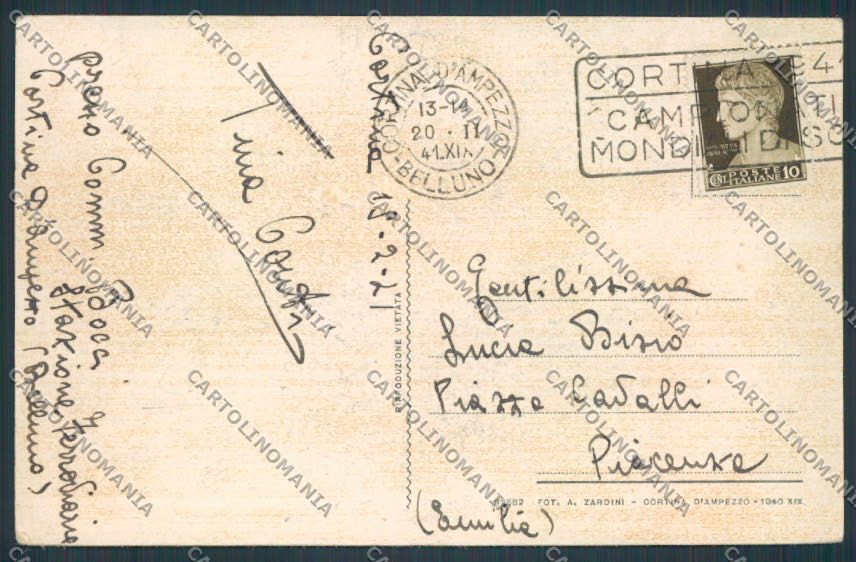 Cortina 18-2-41
Tina
presso Comm. Stazione Ferroviaria
Cortina d'Ampezzo (Belluno)
CORTINA D'AMPEZZO
13-14
20 · II
41.XIX
BELLUNO
CORTINA 1941
CAMPIONATI
MONDIALI DI SCI
POSTE
ITALIANE
CENT. 10
Gentilissima
Lucia Bisio
Piazza Cavalli
Piacenza
(Emilia)
RIPRODUZIONE VIETATA
FOT. A. ZARDINI - CORTINA D'AMPEZZO - 1940 XIX
CARTOLINOMANIA